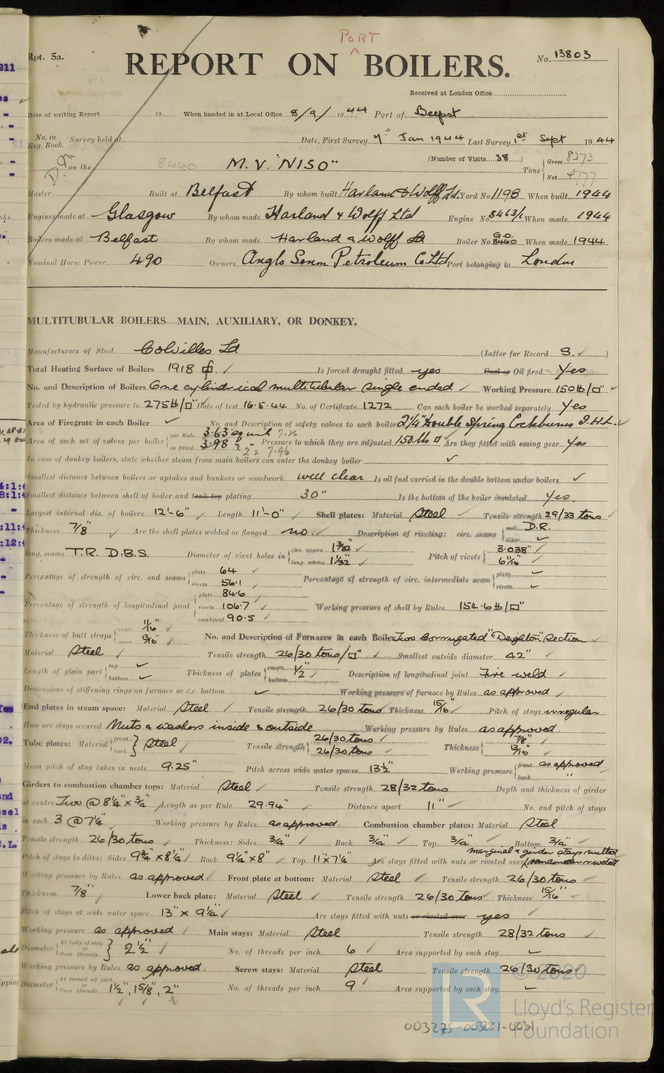 Rpt. 5a.
PORT
REPORT ON BOILERS.
No. 13803
Received at London Office
Date of writing Report 19 When handed in at Local Office 8/9/ 1944 Port of Belfast
No. in Reg. Book. Survey held at Date, First Survey 7th Jan 1944 Last Survey 1st Sept 1944
on the M.V. "NISO" (Number of Visits 38) Tons Gross 8273 Net 4777
Master Built at Belfast By whom built Harland & Wolff Ld. Yard No 1198 When built 1944
Engines made at Glasgow By whom made Harland & Wolff Ltd Engine No. When made 1944
Boilers made at Belfast By whom made Harland & Wolff Ld Boiler No. When made 1944
Nominal Horse Power 490 Owners Anglo Saxon Petroleum Co. Ltd Port belonging to London
MULTITUBULAR BOILERS MAIN, AUXILIARY, OR DONKEY.
Manufacturers of Steel Colvilles Ld (Letter for Record S. )
Total Heating Surface of Boilers 1918 Is forced draught fitted yes Coal or Oil fired Yes
No. and Description of Boilers One cylindrical multitubular single ended Working Pressure 150 lb/□"
Tested by hydraulic pressure to 275 lb/□" Date of test 16.5.44 No. of Certificate 1272 Can each boiler be worked separately Yes
Area of Firegrate in each Boiler No. and Description of safety valves to each boiler 2 1/4" Double Spring Cockburns I.H.L.
Area of each set of valves per boiler per Rule 3.63 as fitted 3.98 Pressure to which they are adjusted 150 lb □" Are they fitted with easing gear Yes
In case of donkey boilers, state whether steam from main boilers can enter the donkey boiler
Smallest distance between boilers or uptakes and bunkers or woodwork well clear Is oil fuel carried in the double bottom under boilers
Smallest distance between shell of boiler and tank top plating 30" Is the bottom of the boiler insulated Yes.
Largest internal dia. of boilers 12'-6" Length 11'-0" Shell plates: Material Steel Tensile strength 29/33 tons
Thickness 7/8" Are the shell plates welded or flanged no. Description of riveting: circ. seams D.R.
long. seams T.R. D.B.S. Diameter of rivet holes in circ. seams 1 3/32 long. seams 1 1/32 Pitch of rivets 3.038"
Percentage of strength of circ. end seams plate 64 rivets 56.1 Percentage of strength of circ. intermediate seam plate rivets
Percentage of strength of longitudinal joint plate 84.6 rivets 106.7 combined 90.5 Working pressure of shell by Rules 154.6 lb/□"
Thickness of butt straps outer 11/16 inner No. and Description of Furnaces in each Boiler Two Corrugated "Deighton" Section
Material Steel Tensile strength 26/30 tons/□" Smallest outside diameter 42"
Length of plain part top bottom Thickness of plates crown bottom 1/2" Description of longitudinal joint Fire weld
Dimensions of stiffening rings on furnace or c.c. bottom Working pressure of furnace by Rules as approved
End plates in steam space: Material Steel Tensile strength 26/30 tons Thickness 15/16" Pitch of stays irregular
How are stays secured Nuts & washers inside & outside Working pressure by Rules as approved
Tube plates: Material front back Steel Tensile strength 26/30 tons 26/30 tons Thickness 7/8"
Mean pitch of stay tubes in nests 9.25" Pitch across wide water spaces 13 1/2" Working pressure front as approved back
Girders to combustion chamber tops: Material Steel Tensile strength 28/32 tons Depth and thickness of girder
at centre Two @ 8 1/4" x 3/4" Length as per Rule 29.94" Distance apart 11" No. and pitch of stays
in each 3 @ 7 1/4" Working pressure by Rules as approved Combustion chamber plates: Material Steel
Tensile strength 26/30 tons Thickness: Sides 3/4" Back 3/4" Top 3/4" Bottom 3/4"
Pitch of stays to ditto: Sides 9 3/4" x 8 1/4" Back 9 1/4" x 8" Top 11" x 7 1/4" Are stays fitted with nuts or riveted over marginal & girder stays nutted remainder riveted
Working pressure by Rules as approved Front plate at bottom: Material Steel Tensile strength 26/30 tons
Thickness 7/8" Lower back plate: Material Steel Tensile strength 26/30 tons Thickness 15/16"
Pitch of stays at wide water space 13" x 9 1/4" Are stays fitted with nuts or riveted over yes
Working pressure as approved Main stays: Material Steel Tensile strength 28/32 tons
Diameter At body of stay Over threads 2 1/2" No. of threads per inch 6 Area supported by each stay
Working pressure by Rules as approved. Screw stays: Material Steel Tensile strength 26/30 tons
Diameter At turned off part Over threads 1 1/2", 1 5/8", 2" No. of threads per inch 9 Area supported by each stay
© 2020
LR Lloyd's Register
Foundation
003275-003281-0051